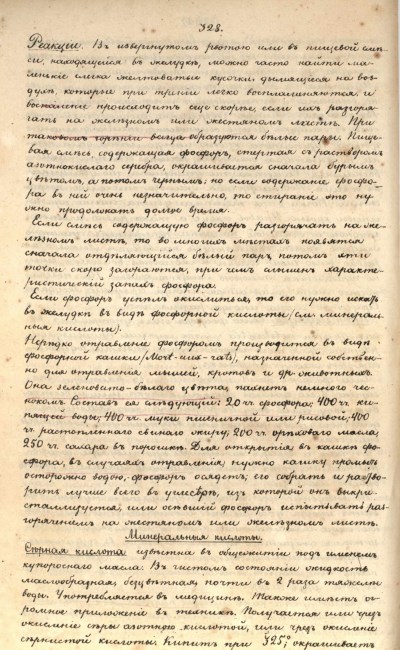 328.
Реакціи. Въ извергнутомъ рвотою или въ пищевой смѣ-
си, находящейся въ желудкѣ, можно часто найти ма-
ленькіе слегка желтоватые кусочки дымящіеся на воз-
духѣ, которые при треніи легко воспламеняются и
воспаленіе происходитъ еще скорѣе, если ихъ разогрѣ-
вать на желѣзномъ или жестяномъ листѣ. При
таковомъ горѣніи всегда образуются бѣлые пары. Пище-
вая смѣсь, содержащая фосфоръ, стертая съ растворомъ
азотнокислаго серебра, окрашивается сначала бурымъ
цвѣтомъ, а потомъ чернымъ; но если содержаніе фосфо-
ра въ ней очень незначительно, то стираніе это ну-
жно продолжать долгое время.
Если смѣсь содержащую фосфоръ разогрѣвать на же-
лѣзномъ листѣ, то во многихъ мѣстахъ появятся
сначала отдѣляющійся бѣлый паръ, потомъ эти
точки скоро загораются, при чемъ слышенъ характе-
ристическій запахъ фосфора.
Если фосфоръ успѣлъ окислиться, то его нужно искать
въ желудкѣ въ видѣ фосфорной кислоты (см. минераль-
ныя кислоты).
Нерѣдко отравленіе фосфоромъ производится въ видѣ
фосфорной кашки (Mort-aux-rats), назначенной собствен-
но для отравленія мышей, кротовъ и др. животныхъ.
Она зеленовато-бѣлаго цвѣта, пахнетъ немного чес-
нокомъ. Составъ ея слѣдующій: 20 чч. фосфора; 400 чч. ки-
пящей воды; 400 чч. муки пшеничной или рисовой; 400
чч. растопленнаго свинаго жиру; 200 чч. орѣховаго масла;
250 чч. сахара въ порошкѣ. Для открытія въ кашкѣ фо-
сфора, въ случаяхъ отравленія, нужно кашку промыть
осторожно водою, фосфоръ осядетъ; его собрать и раство-
рить лучше всего въ углесѣрѣ, изъ которой онъ выкри-
сталлизуется, или осѣвшій фосфоръ испытывать раз-
горяченіемъ на жестяномъ или желѣзномъ листѣ.
Минеральныя кислоты.
Сѣрная кислота извѣстна въ общежитіи подъ именемъ
купороснаго масла. Въ чистомъ состояніи жидкость
маслообразная, безцвѣтная, почти въ 2 раза тяжелѣе
воды. Употребляется въ медицинѣ. Также имѣетъ ог-
ромное приложеніе въ техникѣ. Получается или чрезъ
окисленіе сѣры азотною кислотой, или чрезъ окисленіе
сѣрнистой кислоты. Кипитъ при 325°; окрашиваетъ